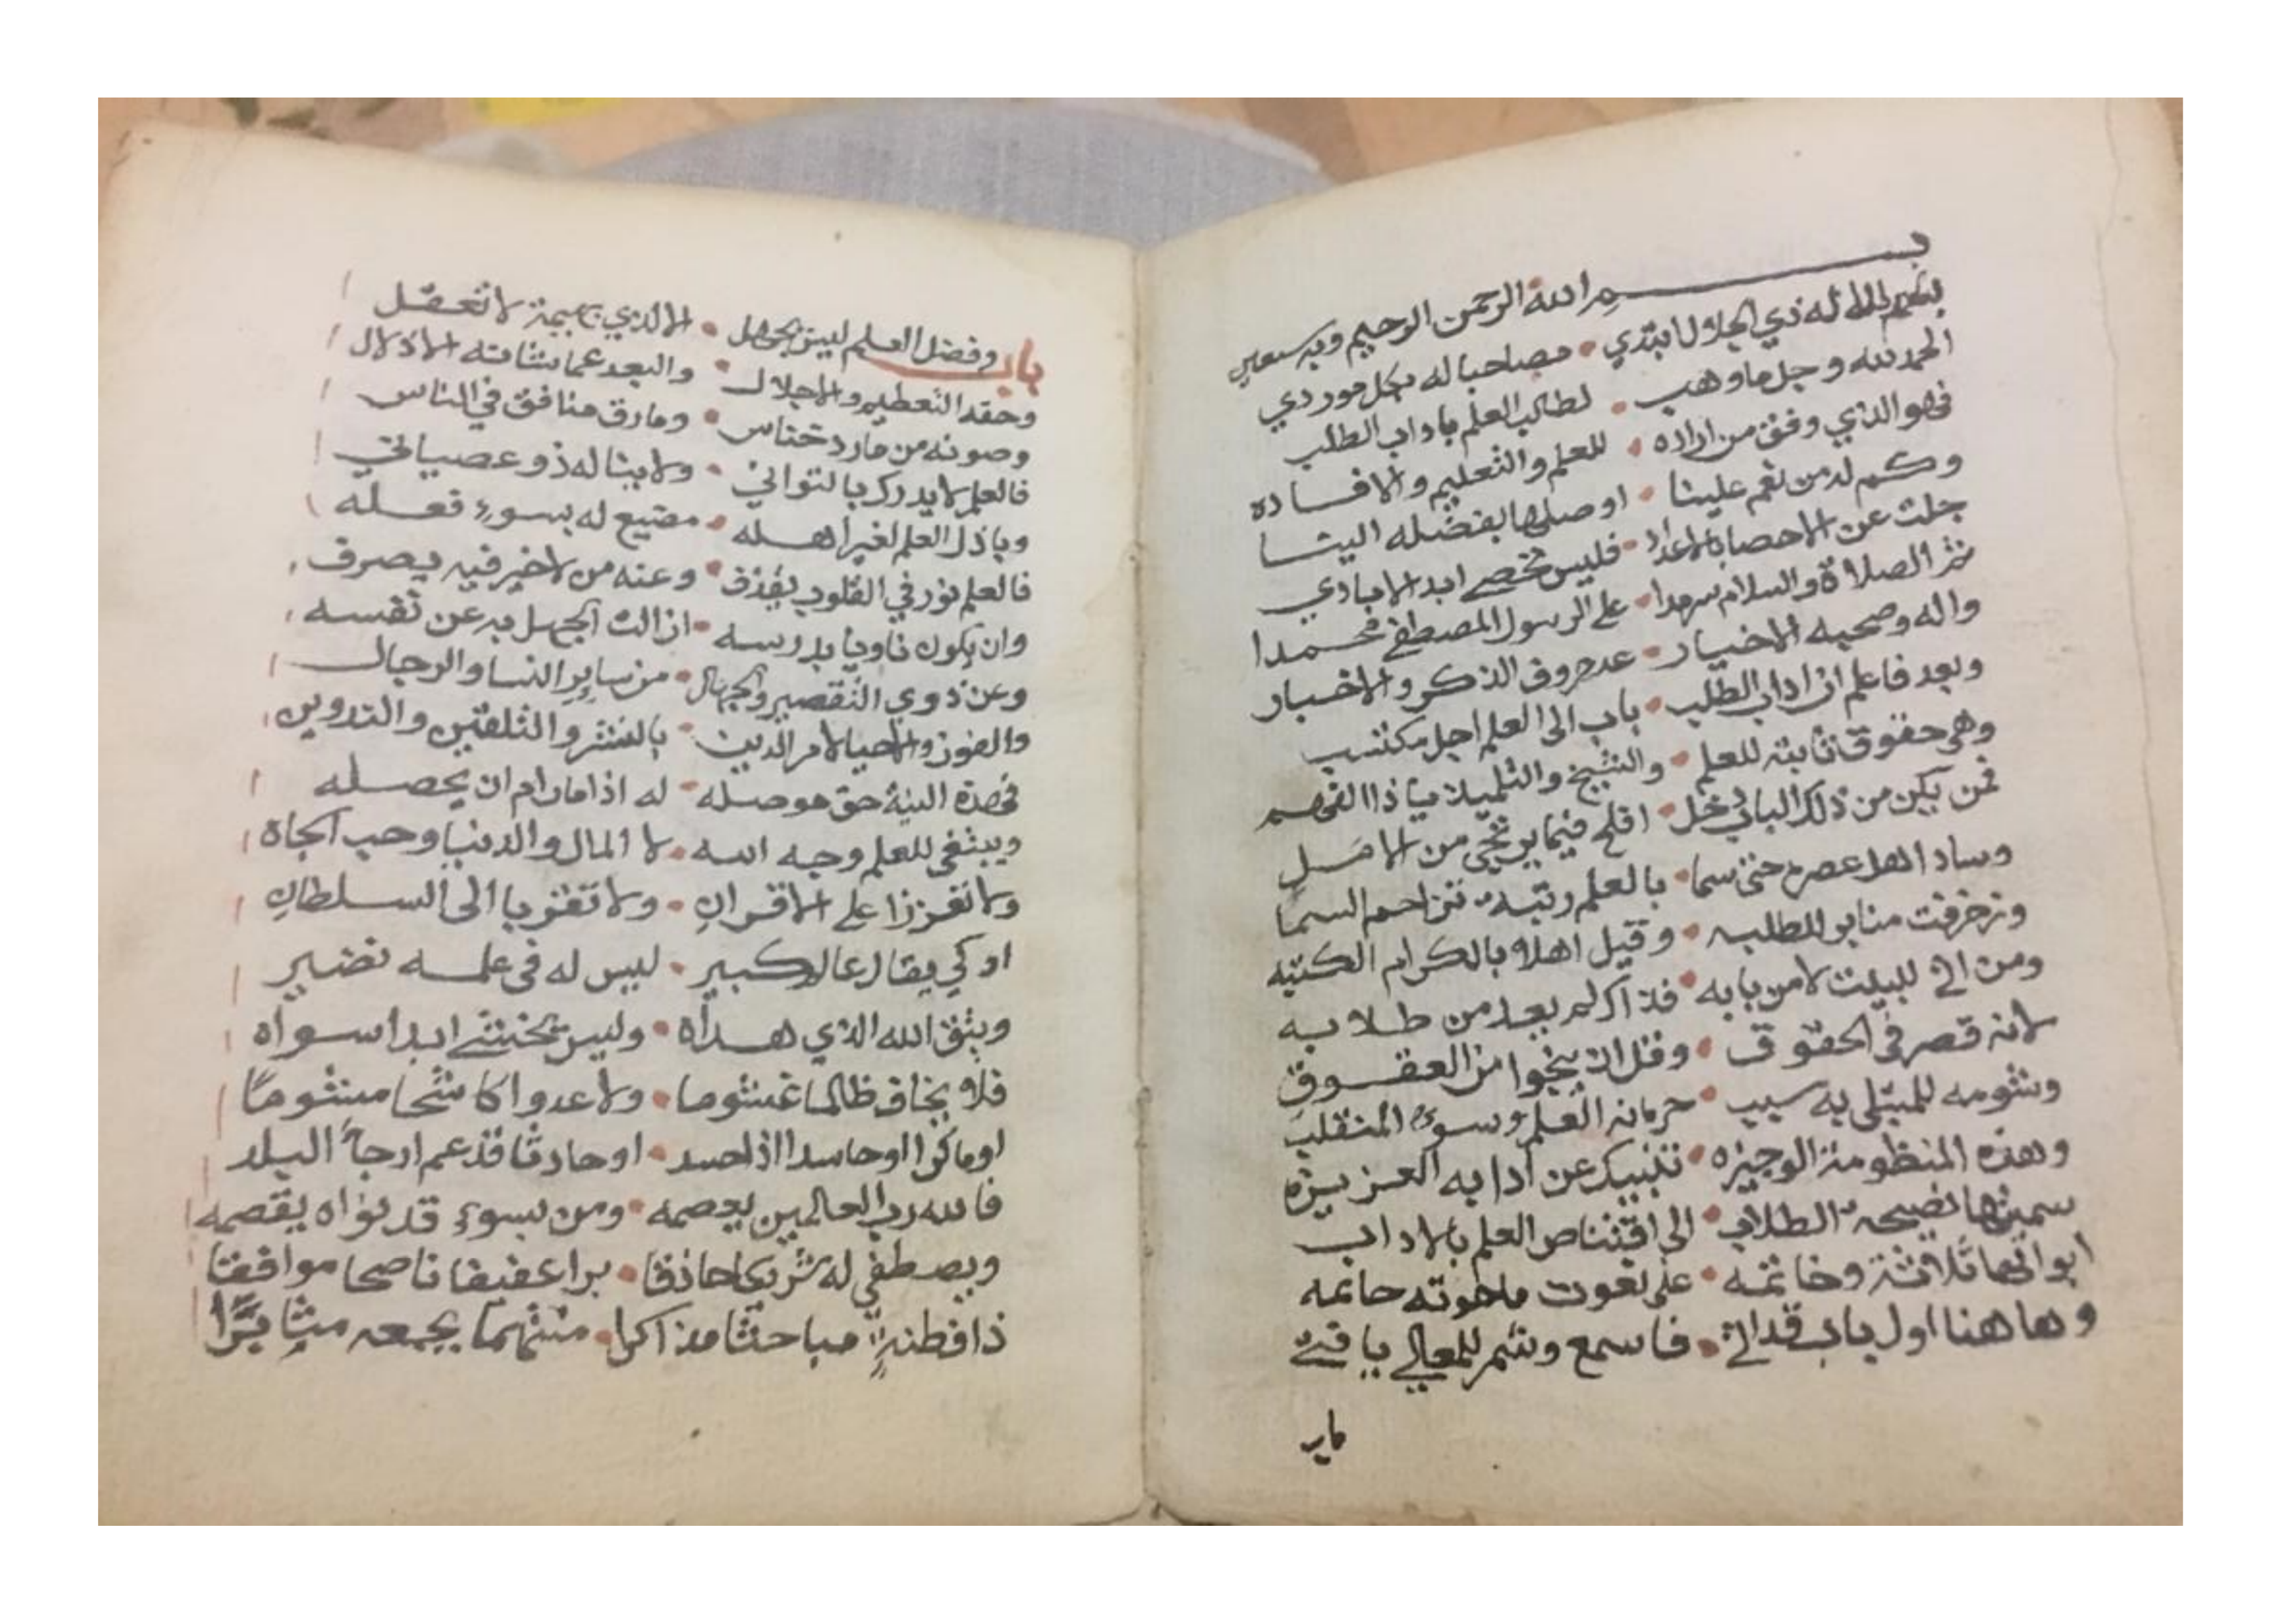 بسم الله الرحمن الرحيم وبه نستعين
بسم الاله ذي الجلال ابتدي • مصاحبا له بكل موردي
الحمد لله وجل ما وهب • لطالب العلم باداب الطلب
فهو الذي وفق من اراده • للعلم والتعليم والافاده
وكم له من نعم علينا • اوصلها بفضله الينا
جلت عن الاحصا بالاعداد • فليس تحصى ابد الابادي
ثم الصلاة والسلام سرمدا • على الرسول المصطفى محمدا
واله وصحبه الاخيار • عد حروف الذكر والاخبار
وبعد فاعلم ان اداب الطلب • باب الى العلم اجل مكتسب
وهي حقوق ثابته للعلم • والشيخ والتلميذ يا ذا الفهم
فمن يكن من ذلك الباب دخل • افلح فيما يرتجي من الامل
وساد اهل عصره حتى سما • بالعلم رتبة تزاحم السما
وزخرفت منابر للطلبه • وقيل اهلا بالكرام الكتبه
ومن اتى للبيت لا من بابه • فذاك لم يعد من طلابه
لانه قصر في الحقوق • وقل ان ينجوا من العقوق
وشومه للمبتلى به سبب • حرمانه العلم وسوء المنقلب
وهذه المنظومة الوجيزه • تنبيك عن ادابه العزيزه
سميتها نصيحة الطلاب • الى اقتناص العلم بالاداب
ابوابها ثلاثة وخاتمه • على نعوت ما حوته حاتمه
وها هنا اول باب قد اتى • فاسمع وشمر للمعالي يا فتى
باب
باب وفضل العلم ليس يجهل • الا لذي بهيمة لا تعقل
وحقه التعظيم والاجلال • والبعد عما شانه الاذلال
وصونه من مارد خناس • ومارق منافق في الناس
فالعلم لا يدرك بالتواني • ولا يناله ذو عصيان
وباذل العلم لغير اهله • مضيع له بسوء فعله
فالعلم نور في القلوب يقذف • وعنه من لا خير فيه يصرف
وان يكون ناويا بدرسه • ازالت الجهل به عن نفسه
وعن ذوي التقصير والجهال • من ساير النسا والرجال
والفوز والاحيا لامر الدين • بالنشر والتلقين والتدوين
فهذه النية حق موصله • له اذا ما رام ان يحصله
ويبتغي للعلم وجه الله • لا المال والدنيا وحب الجاه
ولا تعززا على الاقران • ولا تقربا الى السلطان
او كي يقال عالم كبير • ليس له في علمه نضير
ويثق الله الذي هداه • وليس يختشي ابدا سواه
فلا يخاف ظالما غشوما • ولا عدوا كاشحا مشوما
او ماكرا او حاسدا اذا حسد • او حادثا قد عم ارجآ البلد
فالله رب العالمين يعصمه • ومن بسوء قد نواه يقصمه
ويصطفي له شريكا حاذقا • برا عفيفا ناصحا موافقا
ذا فطنة مباحثا مذاكرا • متهما بجمعه مثابرا